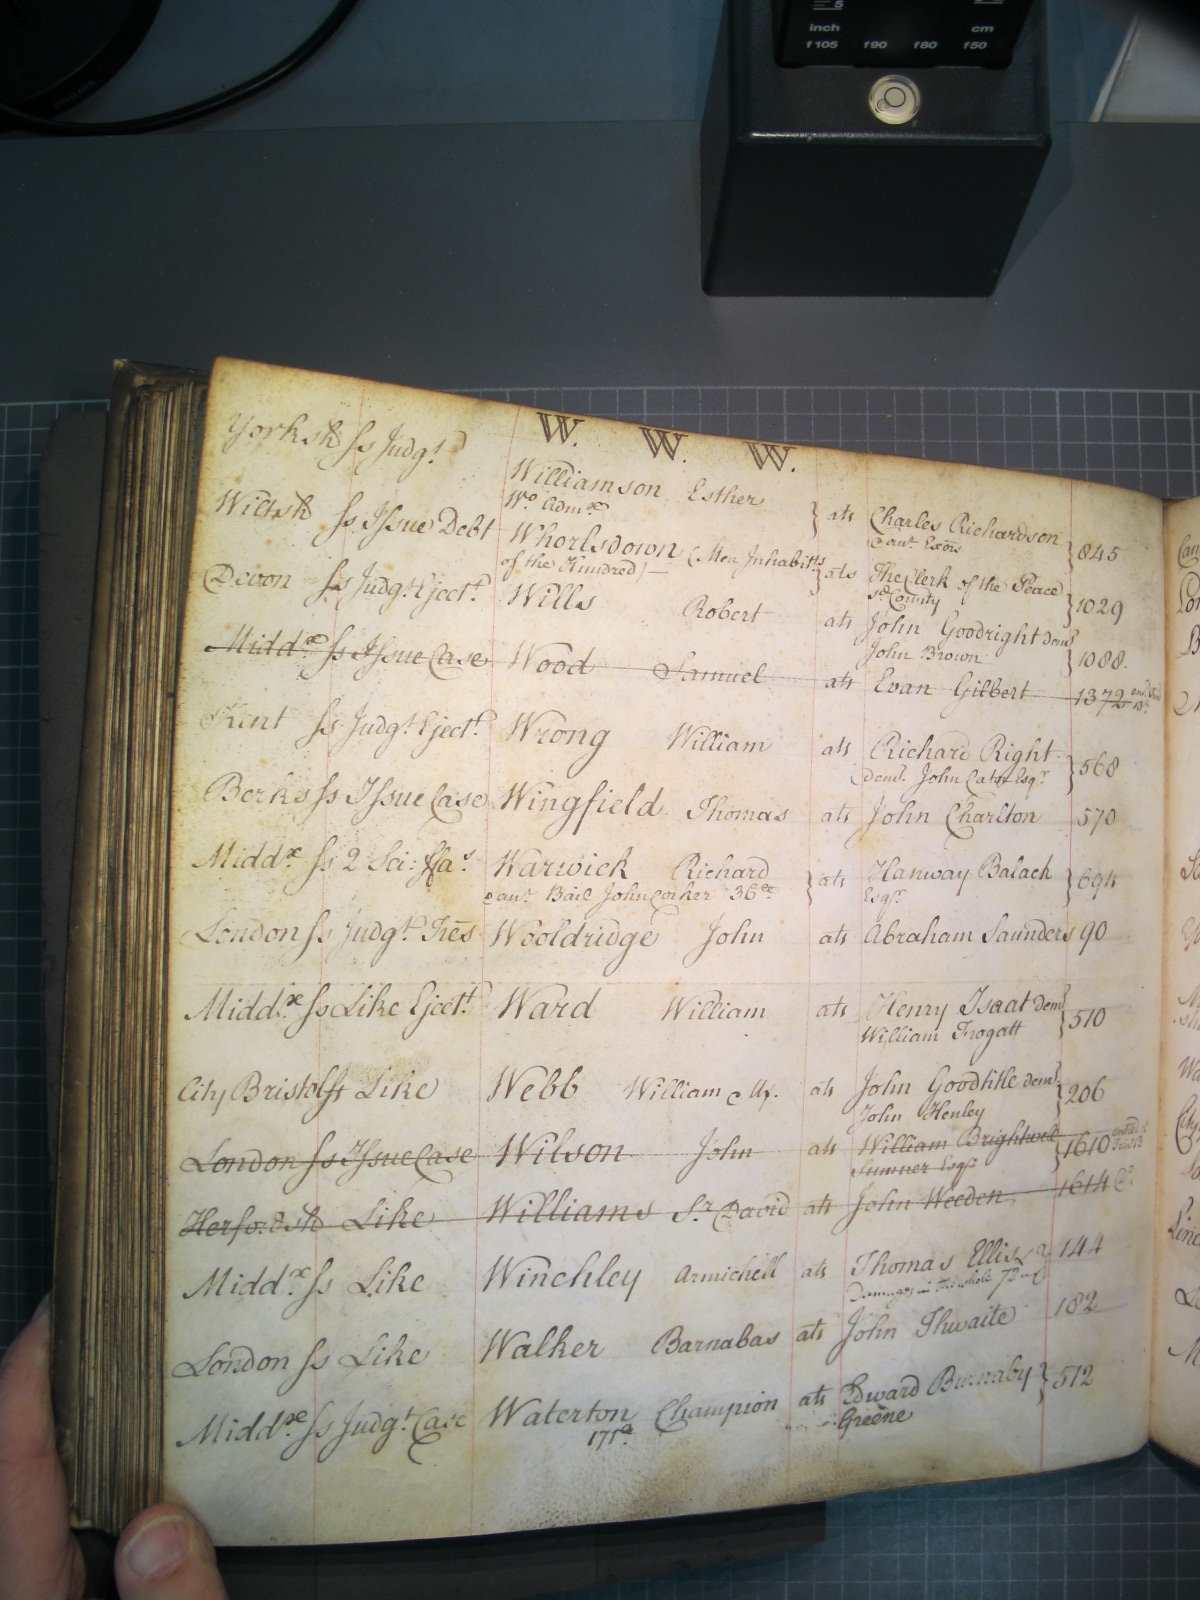 inch cm
f105 f90 f80 f50
PHILIPS
W. W. W.
Yorksh Ss Judgt. Williamson Esther } ats Charles Richardson } 845
Wo. Admx. & aur. Exors
Wiltsh Ss. Issue Debt Whorlsdown (Men Inhabitts } ats The Clerk of the Peace } 1029
of the Hundred) sd. County
Devon Ss Judgt. Ejectt. Wills Robert ats John Goodright dem } 1088.
John Brown
Middx Ss Issue Case Wood Samuel ats Evan Gilbert 1372
Kent Ss Judgt. Ejectt. Wrong William ats Richard Right } 568
demt. John Cator Esqr.
Berks Ss Issue Case Wingfield Thomas ats John Charlton 570
Middx Ss 2 Sci: fas Warwick Richard } ats Hanway Balack } 694
& aur. Bail John Corker 36 Esqr.
London Ss Judgt. Tres Wooldridge John ats Abraham Saunders 90
Middx Ss Like Ejectt. Ward William ats Henry Isaat dem } 510
William Frogatt
City Bristol Ss Like Webb William & Ux. ats John Goodtitle dem } 206
John Henley
London Ss Issue Case Wilson John ats William Brightwel } 1610
Sumner Esqr.
Herfordsh Like Williams Sr. David ats John Weeden 1614
Middx Ss Like Winchley Armichell ats Thomas Ellis } 144
Damages in the whole
London Ss Like Walker Barnabas ats John Thwaite 182
Middx Ss Judgt. Case Waterton Champion ats Edward Burnaby } 512
Greene